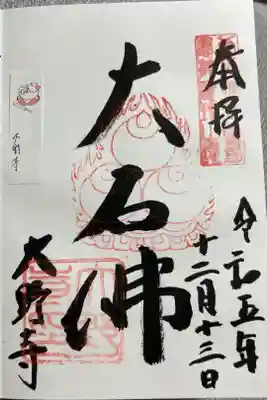 奉拝
令和五年
十二月十三日
大石佛
大野寺